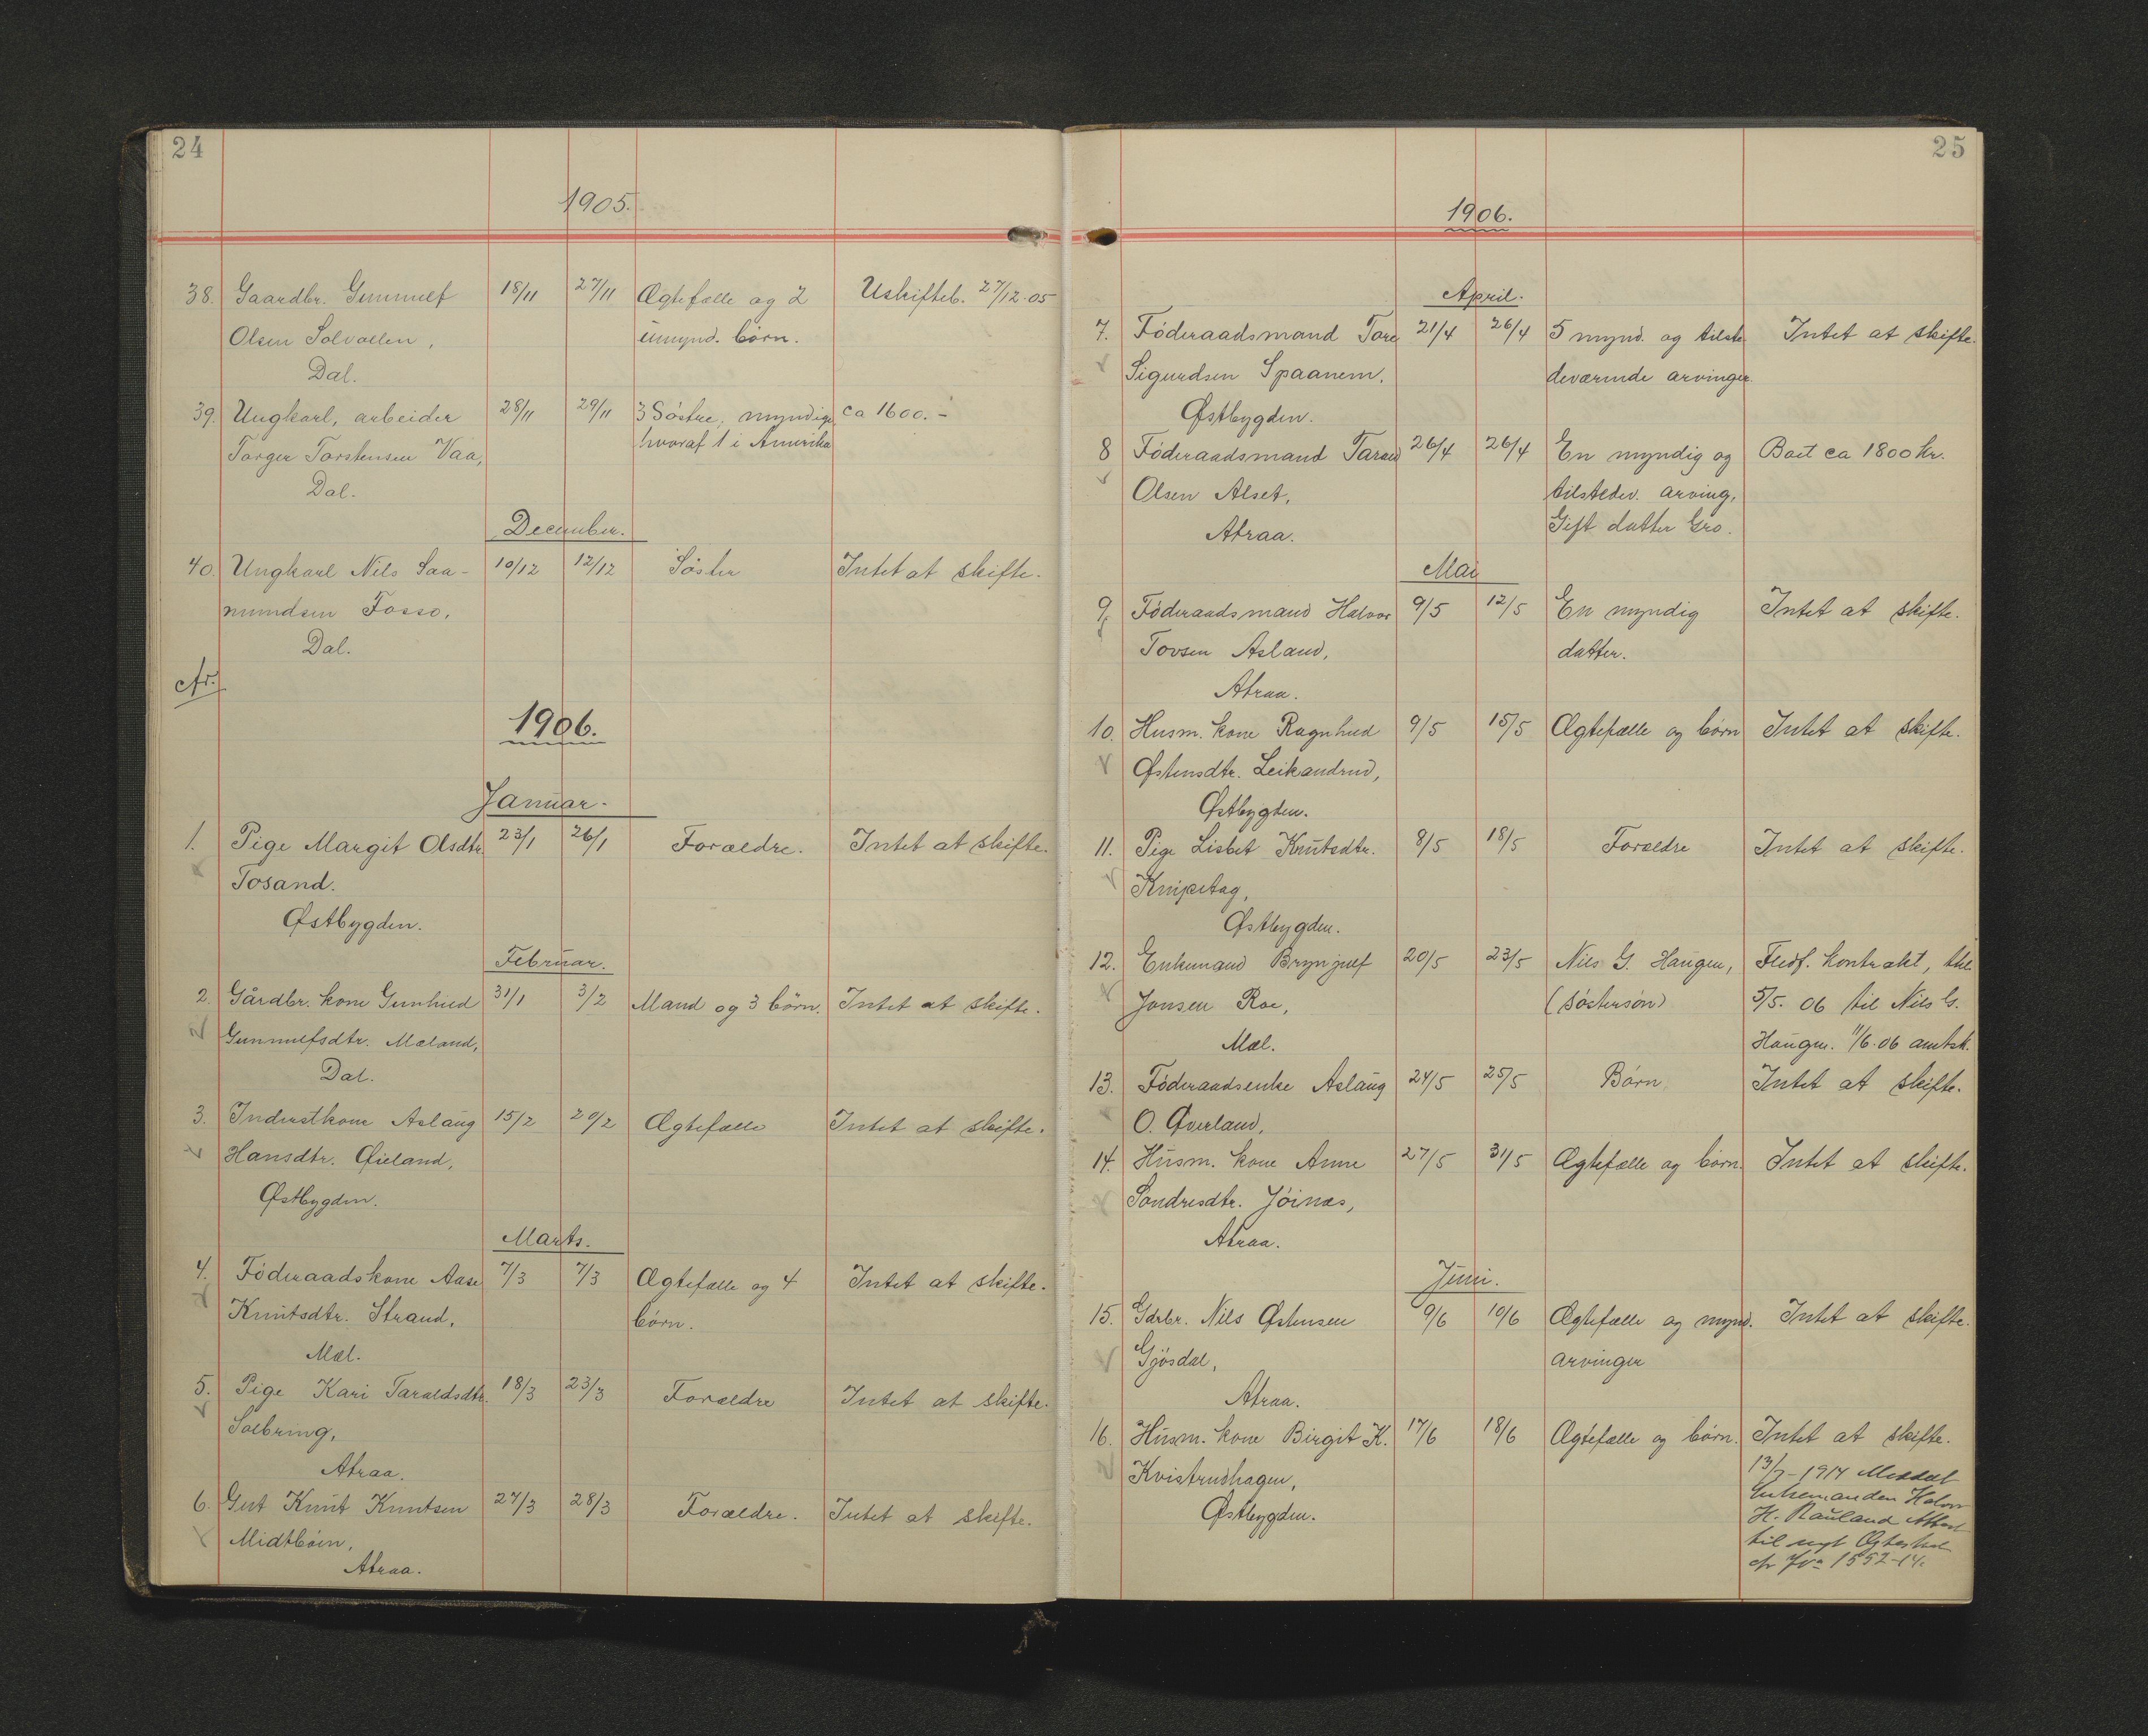 24
1905.
38. Gaardbr. Gunnulf 18/11 27/11 Ægtefælle og 2 Uskifteb. 27/12.05
Olsen Solvollen, umynd. børn.
Dal.
39. Ungkarl, arbeider 28/11 29/11 3 Söstre, myndige, ca 1600.-
Torger Torstensen Vaa, hvoraf 1 i Amerika
Dal.
December.
40. Ungkarl Nils Saa- 10/12 12/12 Söster Intet at skifte.
mundsen Fosso,
Dal.
1906.
Januar.
1. Pige Margit Olsdtr. 23/1 26/1 Forældre. Intet at skifte.
Tosand.
Østbygden.
Februar.
2. Gårdbr. kone Gunhild 31/1 3/2 Mand og 3 börn. Intet at skifte.
Gunnulfsdtr. Mæland,
Dal.
3. Inderstkone Aslaug 15/2 20/2 Ægtefælle Intet at skifte.
Hansdtr. Øieland,
Østbygden.
Marts.
4. Föderaadskone Aase 7/3 7/3 Ægtefælle og 4 Intet at skifte.
Knutsdtr. Strand, börn.
Mæl.
5. Pige Kari Taraldsdtr. 18/3 23/3 Forældre Intet at skifte.
Solbring,
Atraa.
6. Gut Knut Knutsen 27/3 28/3 Forældre. Intet at skifte.
Midtböen,
Atraa.
25
1906.
April.
7. Föderaadsmand Tore 21/4 26/4 5 mynd. og tilste- Intet at skifte.
Sigurdsen Spaanem, deværende arvinger
Østbygden.
8 Föderaadsmand Tarald 26/4 26/4 En myndig og Boet ca 1800 kr.
Olsen Alset, tilstedev. arving,
Atraa. Gift datter Gro.
Mai
9. Föderaadsmand Halvor 9/5 12/5 En myndig Intet at skifte.
Tovsen Asland, datter.
Atraa.
10. Husm. kone Ragnhild 9/5 15/5 Ægtefælle og börn Intet at skifte.
Østensdtr. Leikandrud,
Østbygden.
11. Pige Lisbet Knutsdtr. 8/5 18/5 Forældre Intet at skifte.
Knipetag,
Østbygden.
12. Enkemand Brynjulf 20/5 23/5 Nils G. Haugen, Fledf. kontrakt, thl.
Jonsen Roe, (söstersön) 5/5. 06 til Nils G.
Mæl. Haugen. 11/6.06 amtsk.
13. Föderaadsenke Aslaug 24/5 25/5 Börn Intet at skifte.
O. Øverland,
14. Husm. kone Anne 27/5 31/5 Ægtefælle og börn. Intet at skifte.
Sondresdtr. Jöinæs,
Atraa.
Juni.
15. Gdrbr. Nils Østensen 9/6 10/6 Ægtefælle og mynd. Intet at skifte.
Gjösdal, arvinger
Atraa.
16. Husm. kone Birgit K. 17/6 18/6 Ægtefælle og börn. Intet at skifte.
Kvistrudhagen, 13/7-1914 Meddelt
Østbygden. Enkemanden Halvor
H. Rauland Attest
til nyt Ægteskab
1552-14.